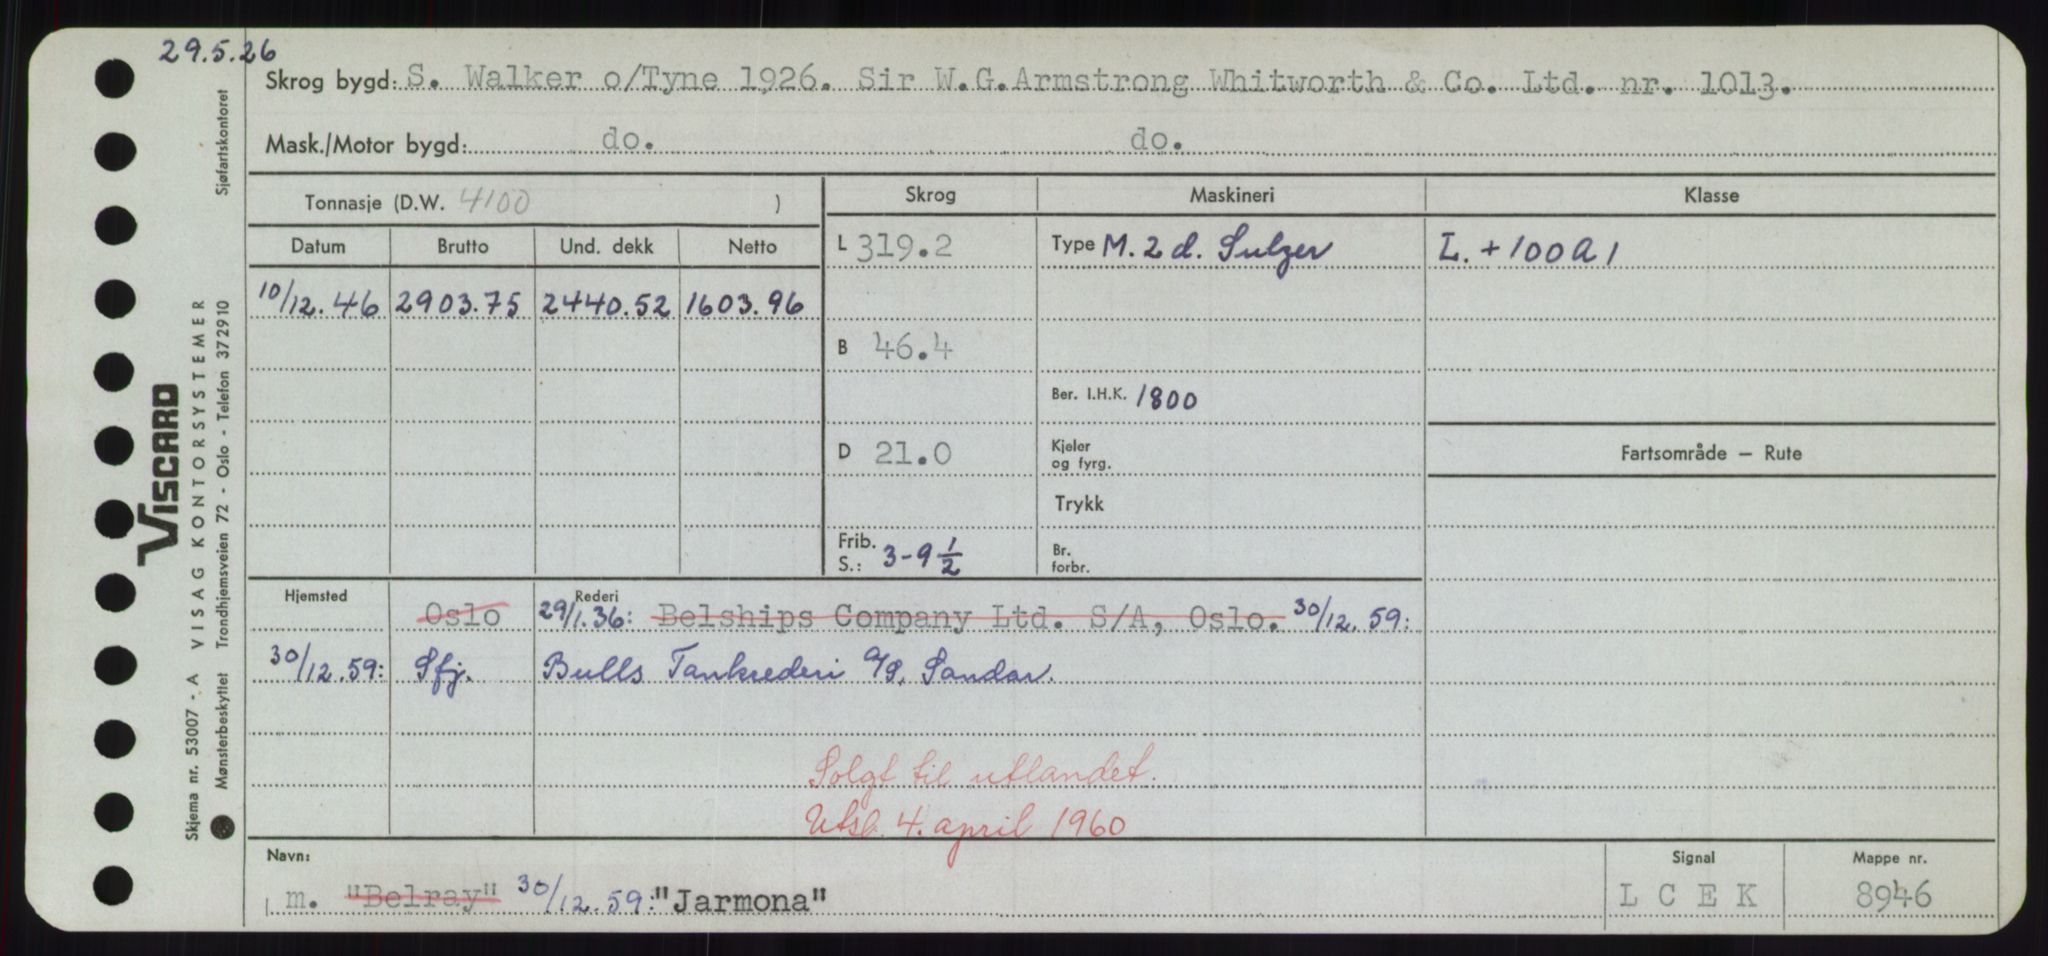 29.5.26
Skrog bygd: S. Walker o/Tyne 1926. Sir W.G.Armstrong Whitworth & Co. Ltd. nr. 1013.
Mask./Motor bygd: do. do.
Tonnasje (D.W. 4100 )
Skrog Maskineri Klasse
Datum Brutto Und. dekk Netto
L 319.2 Type M. 2 d. Sulzer L. + 100 A 1
10/12.46 2903.75 2440.52 1603.96
B 46.4
Ber. I.H.K. 1800
D 21.0 Kjeler og fyrg.
Fartsområde — Rute
Trykk
Frib. S.: 3-9 1/2 Br. forbr.
Hjemsted Oslo Rederi 29/1.36: Belships Company Ltd. S/A, Oslo. 30/12.59:
30/12.59: Sfj. Bulls Tankrederi A/S, Sandar.
Solgt til utlandet.
Utsl. 4. april 1960
Navn: Signal Mappe nr.
m. "Belray" 30/12.59: "Jarmona" L C E K 8946
VISCARD
VISAG KONTORSYSTEMER
Skjema nr. 53007 - A
Mønsterbeskyttet Trondhjemsveien 72 - Oslo - Telefon 372910 Sjøfartskontoret